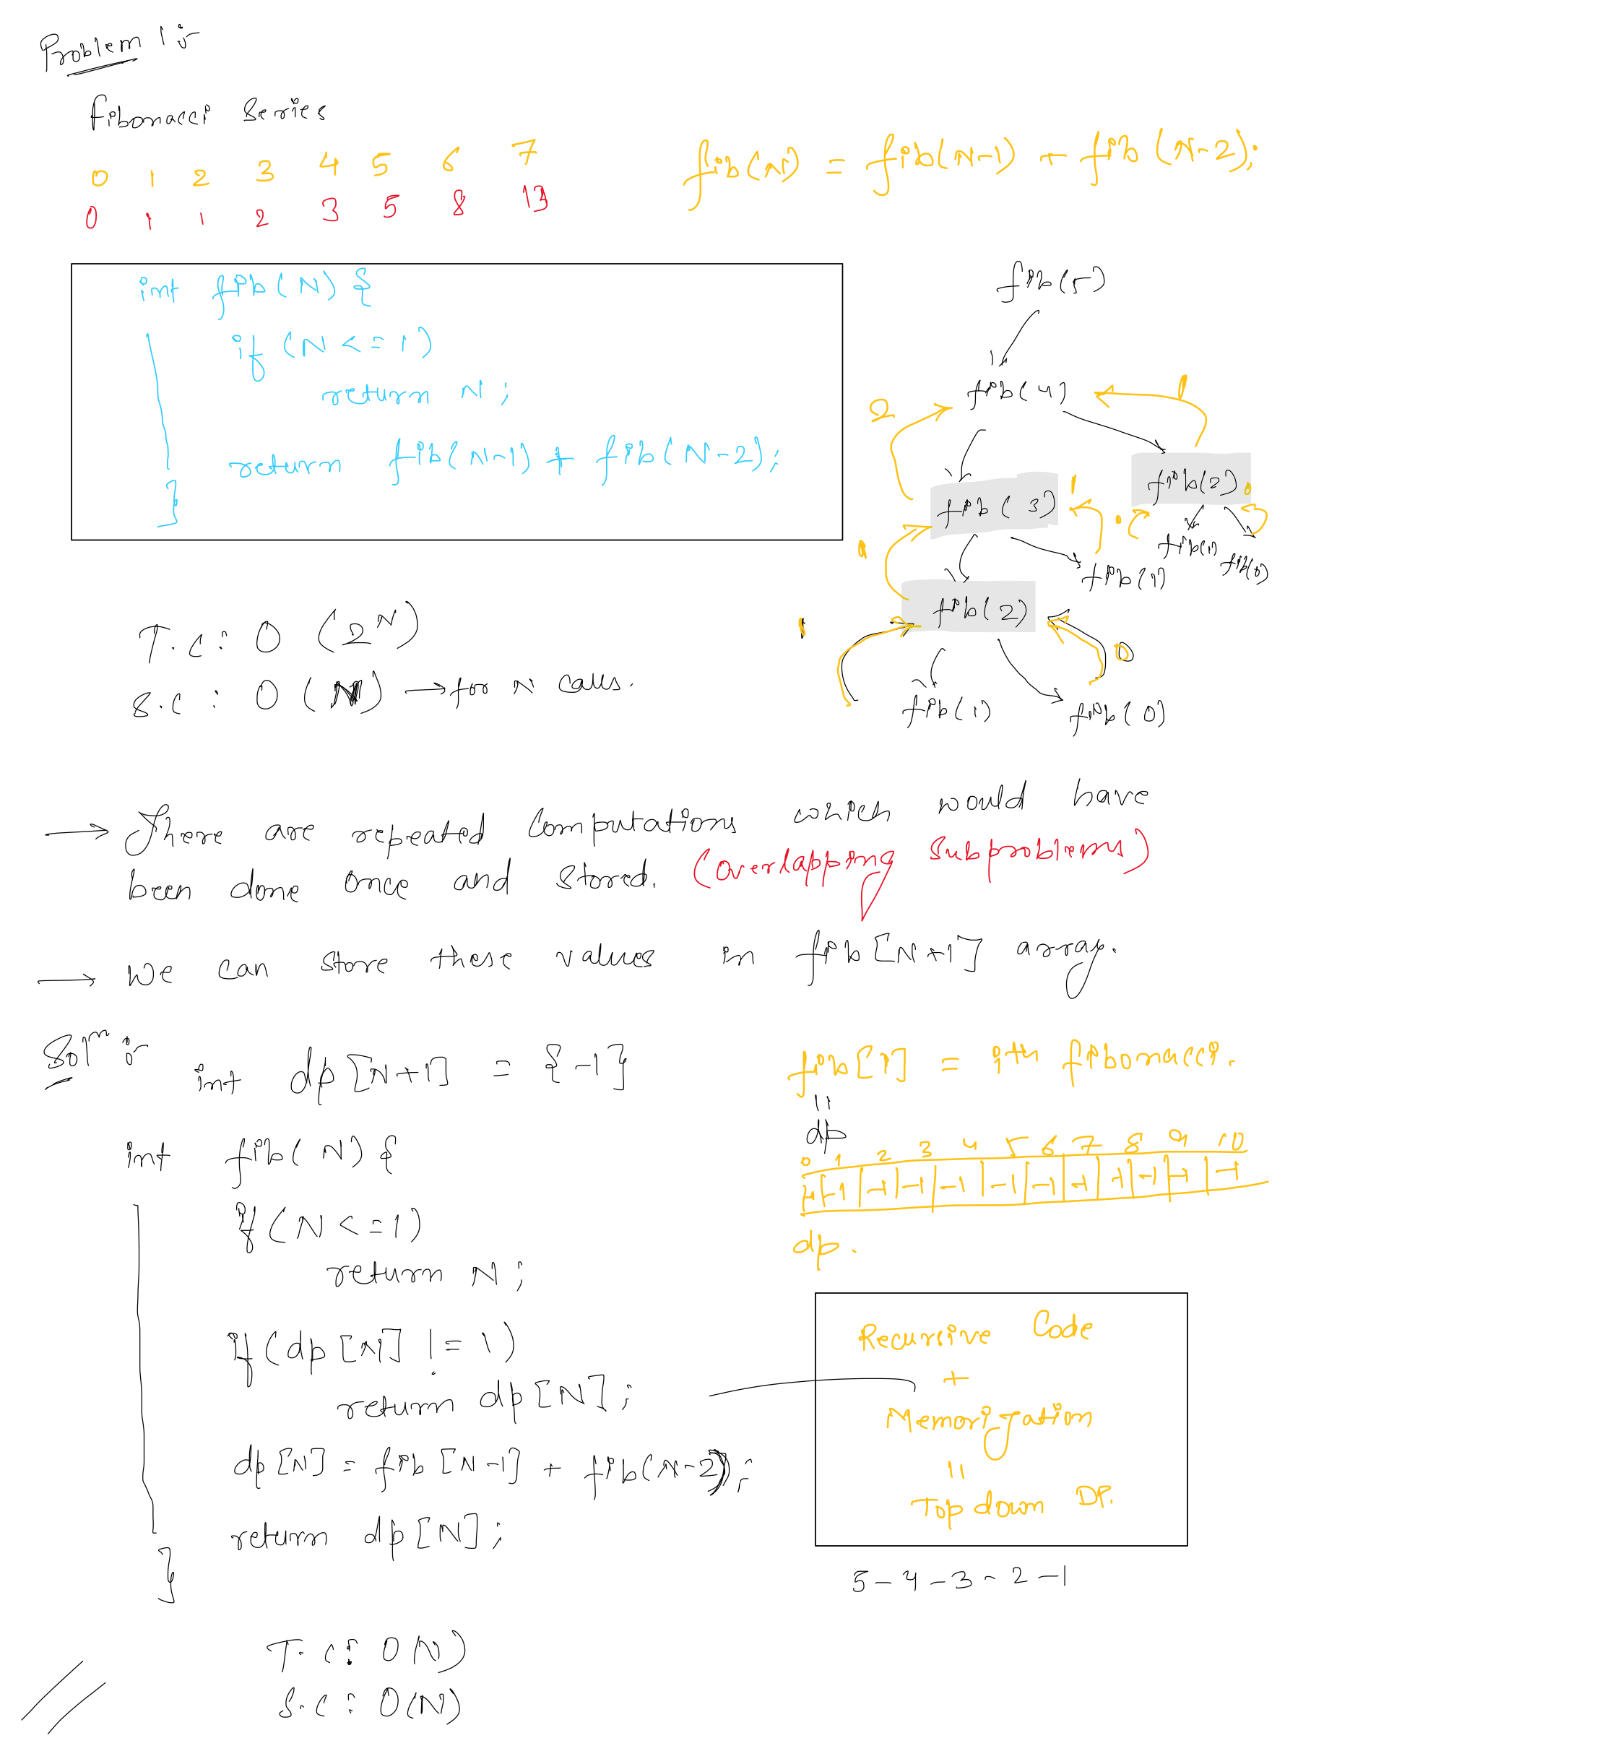 Problem 1 :-
Fibonacci Series
0 1 2 3 4 5 6 7
0 1 1 2 3 5 8 13
fib(N) = fib(N-1) + fib(N-2);
int fib(N) {
if (N <= 1)
return N;
return fib(N-1) + fib(N-2);
}
fib(5)
fib(4)
2
1
fib(3)
fib(2)
1
fib(1)
fib(0)
fib(1)
fib(2)
1
0
fib(1)
fib(0)
T.C: O (2^N)
S.C : O (N) → for N calls.
→ There are repeated Computations which would have
been done once and stored. (Overlapping Subproblems)
→ We can store these values in fib[N+1] array.
Soln :-
int dp[N+1] = {-1}
int fib(N) {
if (N <= 1)
return N;
if (dp[N] != 1)
return dp[N];
dp[N] = fib[N-1] + fib(N-2);
return dp[N];
}
T.C: O(N)
S.C: O(N)
fib[i] = ith fibonacci.
||
dp
0 1 2 3 4 5 6 7 8 9 10
-1 -1 -1 -1 -1 -1 -1 -1 -1 -1 -1 -1
dp.
Recursive Code
+
Memorization
||
Top down DP.
5-4-3-2-1